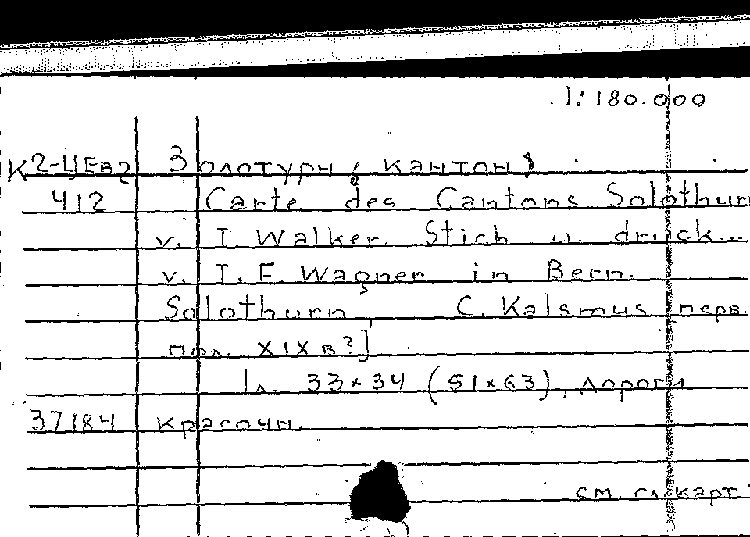 1:180.000
К2-ЦЕв2 Золотурн, кантон
412 Carte des Cantons Solothurn
v. I. Walker. Stich u. druck...
v. I. F. Wagner in Bern.
Solothurn, C. Kalsmus перв.
пол. XIX в?]
1л. 33×34 (51×63), дороги
37184 красочн.
см. сл. карт